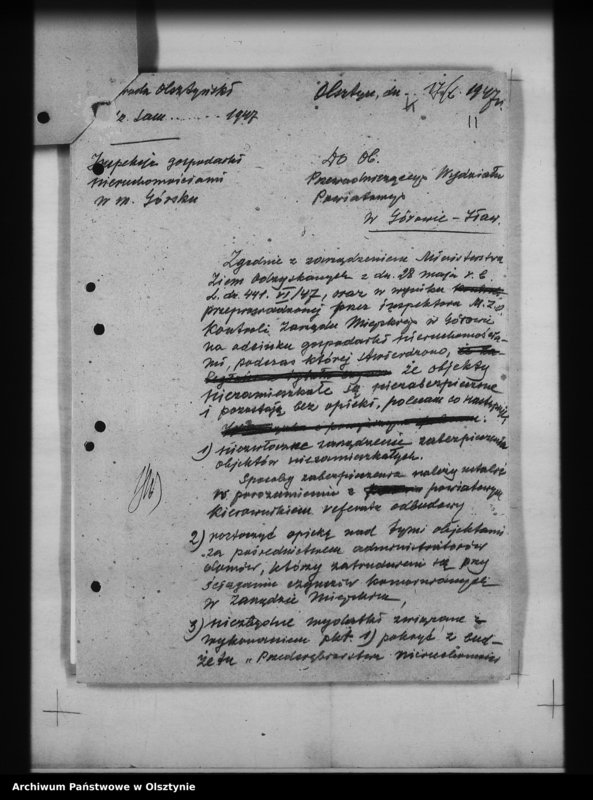 Olsztyn, dn. 17/6. 1947r.
Olsztyński
Sam ........ 1947
11
Inspekcja gospodarki
nieruchomościami
w m. Górowie
Do Ob.
Przewodniczącego Wydziału
Powiatowego
w Górowie - Iław.
Zgodnie z zarządzeniem Ministerstwa
Ziem Odzyskanych z dn. 28 maja r. b.
L. dz. 441. VI/47, oraz w wyniku
przeprowadzonej przez inspektora M.Z.O.
kontroli Zarządu Miejskiego w Górowie
na odcinku gospodarki nieruchomościa-
mi, podczas której stwierdzono,
że objekty
niezamieszkałe są niezabezpieczone
i pozostają bez opieki, polecam co następuje
1) niezwłoczne zarządzenie zabezpieczenia
objektów niezamieszkałych.
Sposoby zabezpieczenia należy ustalić
w porozumieniu z powiatowym
kierownikiem referatu odbudowy
2) roztoczyć opiekę nad tymi objektami
za pośrednictwem administratorów
domów, którzy zatrudnieni są przy
ściąganiu czynszów komornianych
w Zarządzie Miejskim,
3) niezbędne wydatki związane z
wykonaniem pkt. 1) pokryć z bud-
żetu "Przedsiębiorstwa Nieruchomości
Archiwum Państwowe w Olsztynie